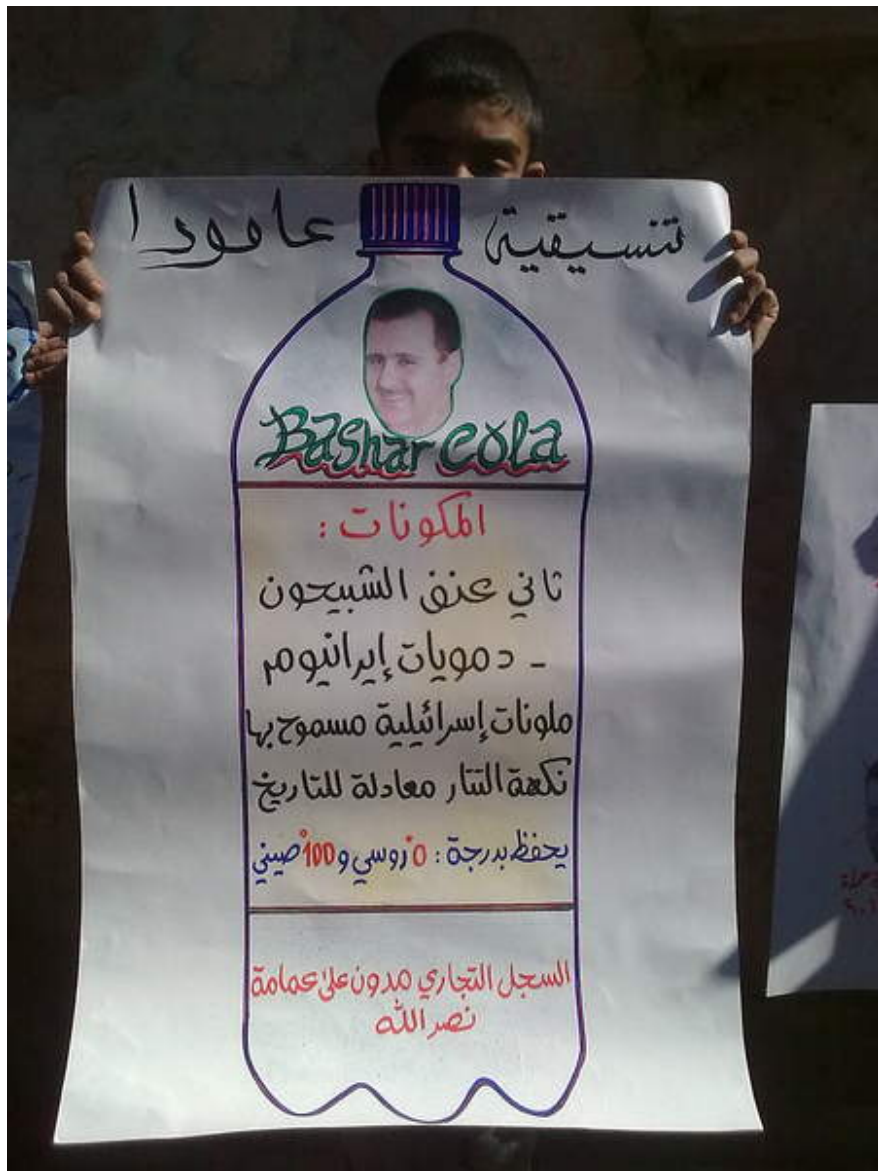 تنسيقية عامودا
Bashar cola
المكونات :
ثاني عنف الشبيحون
- دمويات إيرانيوم
ملونات إسرائيلية مسموح بها
نكهة التتار معادلة للتاريخ
يحفظ بدرجة : 0° روسي و 100° صيني
السجل التجاري مدون على عمامة
نصر الله